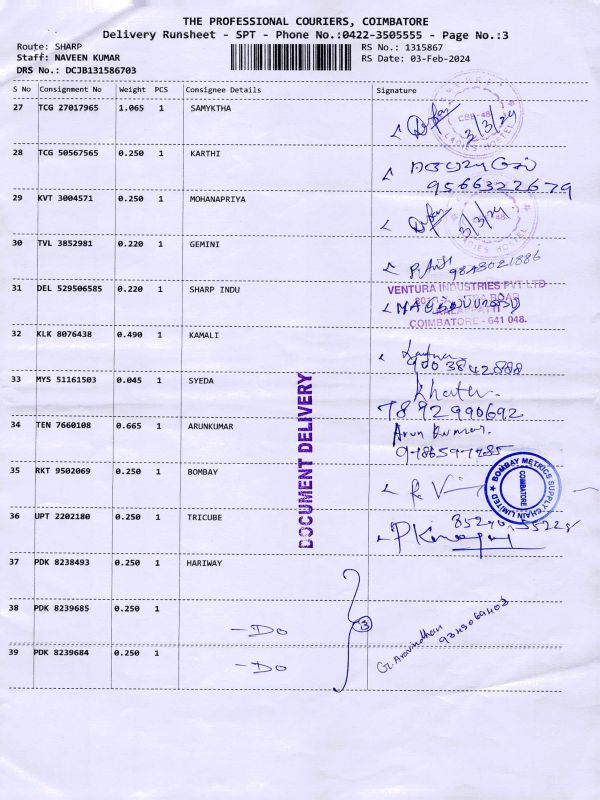 THE PROFESSIONAL COURIERS, COIMBATORE
Delivery Runsheet - SPT - Phone No.:0422-3505555 - Page No.:3
Route: SHARP
RS No.: 1315867
Staff: NAVEEN KUMAR
RS Date: 03-Feb-2024
DRS No.: DCJB131586703
S No Consignment No Weight PCS Consignee Details Signature
27 TCG 27017965 1.065 1 SAMYKTHA
3/3/24
LADIES HOSTEL
28 TCG 50567565 0.250 1 KARTHI
9566322679
29 KVT 3004571 0.250 1 MOHANAPRIYA
3/3/24
LADIES HOSTEL
30 TVL 3852981 0.220 1 GEMINI
9843021886
31 DEL 529506585 0.220 1 SHARP INDU
VENTURA INDUSTRIES PVT LTD
ROAD
COIMBATORE - 641 048.
32 KLK 8076438 0.490 1 KAMALI
9003842888
33 MYS 51161503 0.045 1 SYEDA
Khater
7892990692
34 TEN 7660108 0.665 1 ARUNKUMAR
Arun Kumar.
DOCUMENT DELIVERY
35 RKT 9502069 0.250 1 BOMBAY
BOMBAY METRICS SUPPLY CHAIN LIMITED
COIMBATORE
36 UPT 2202180 0.250 1 TRICUBE
37 PDK 8238493 0.250 1 HARIWAY
38 PDK 8239685 0.250 1
- Do
13
G. Aravindhan
9345069403
39 PDK 8239684 0.250 1
- Do